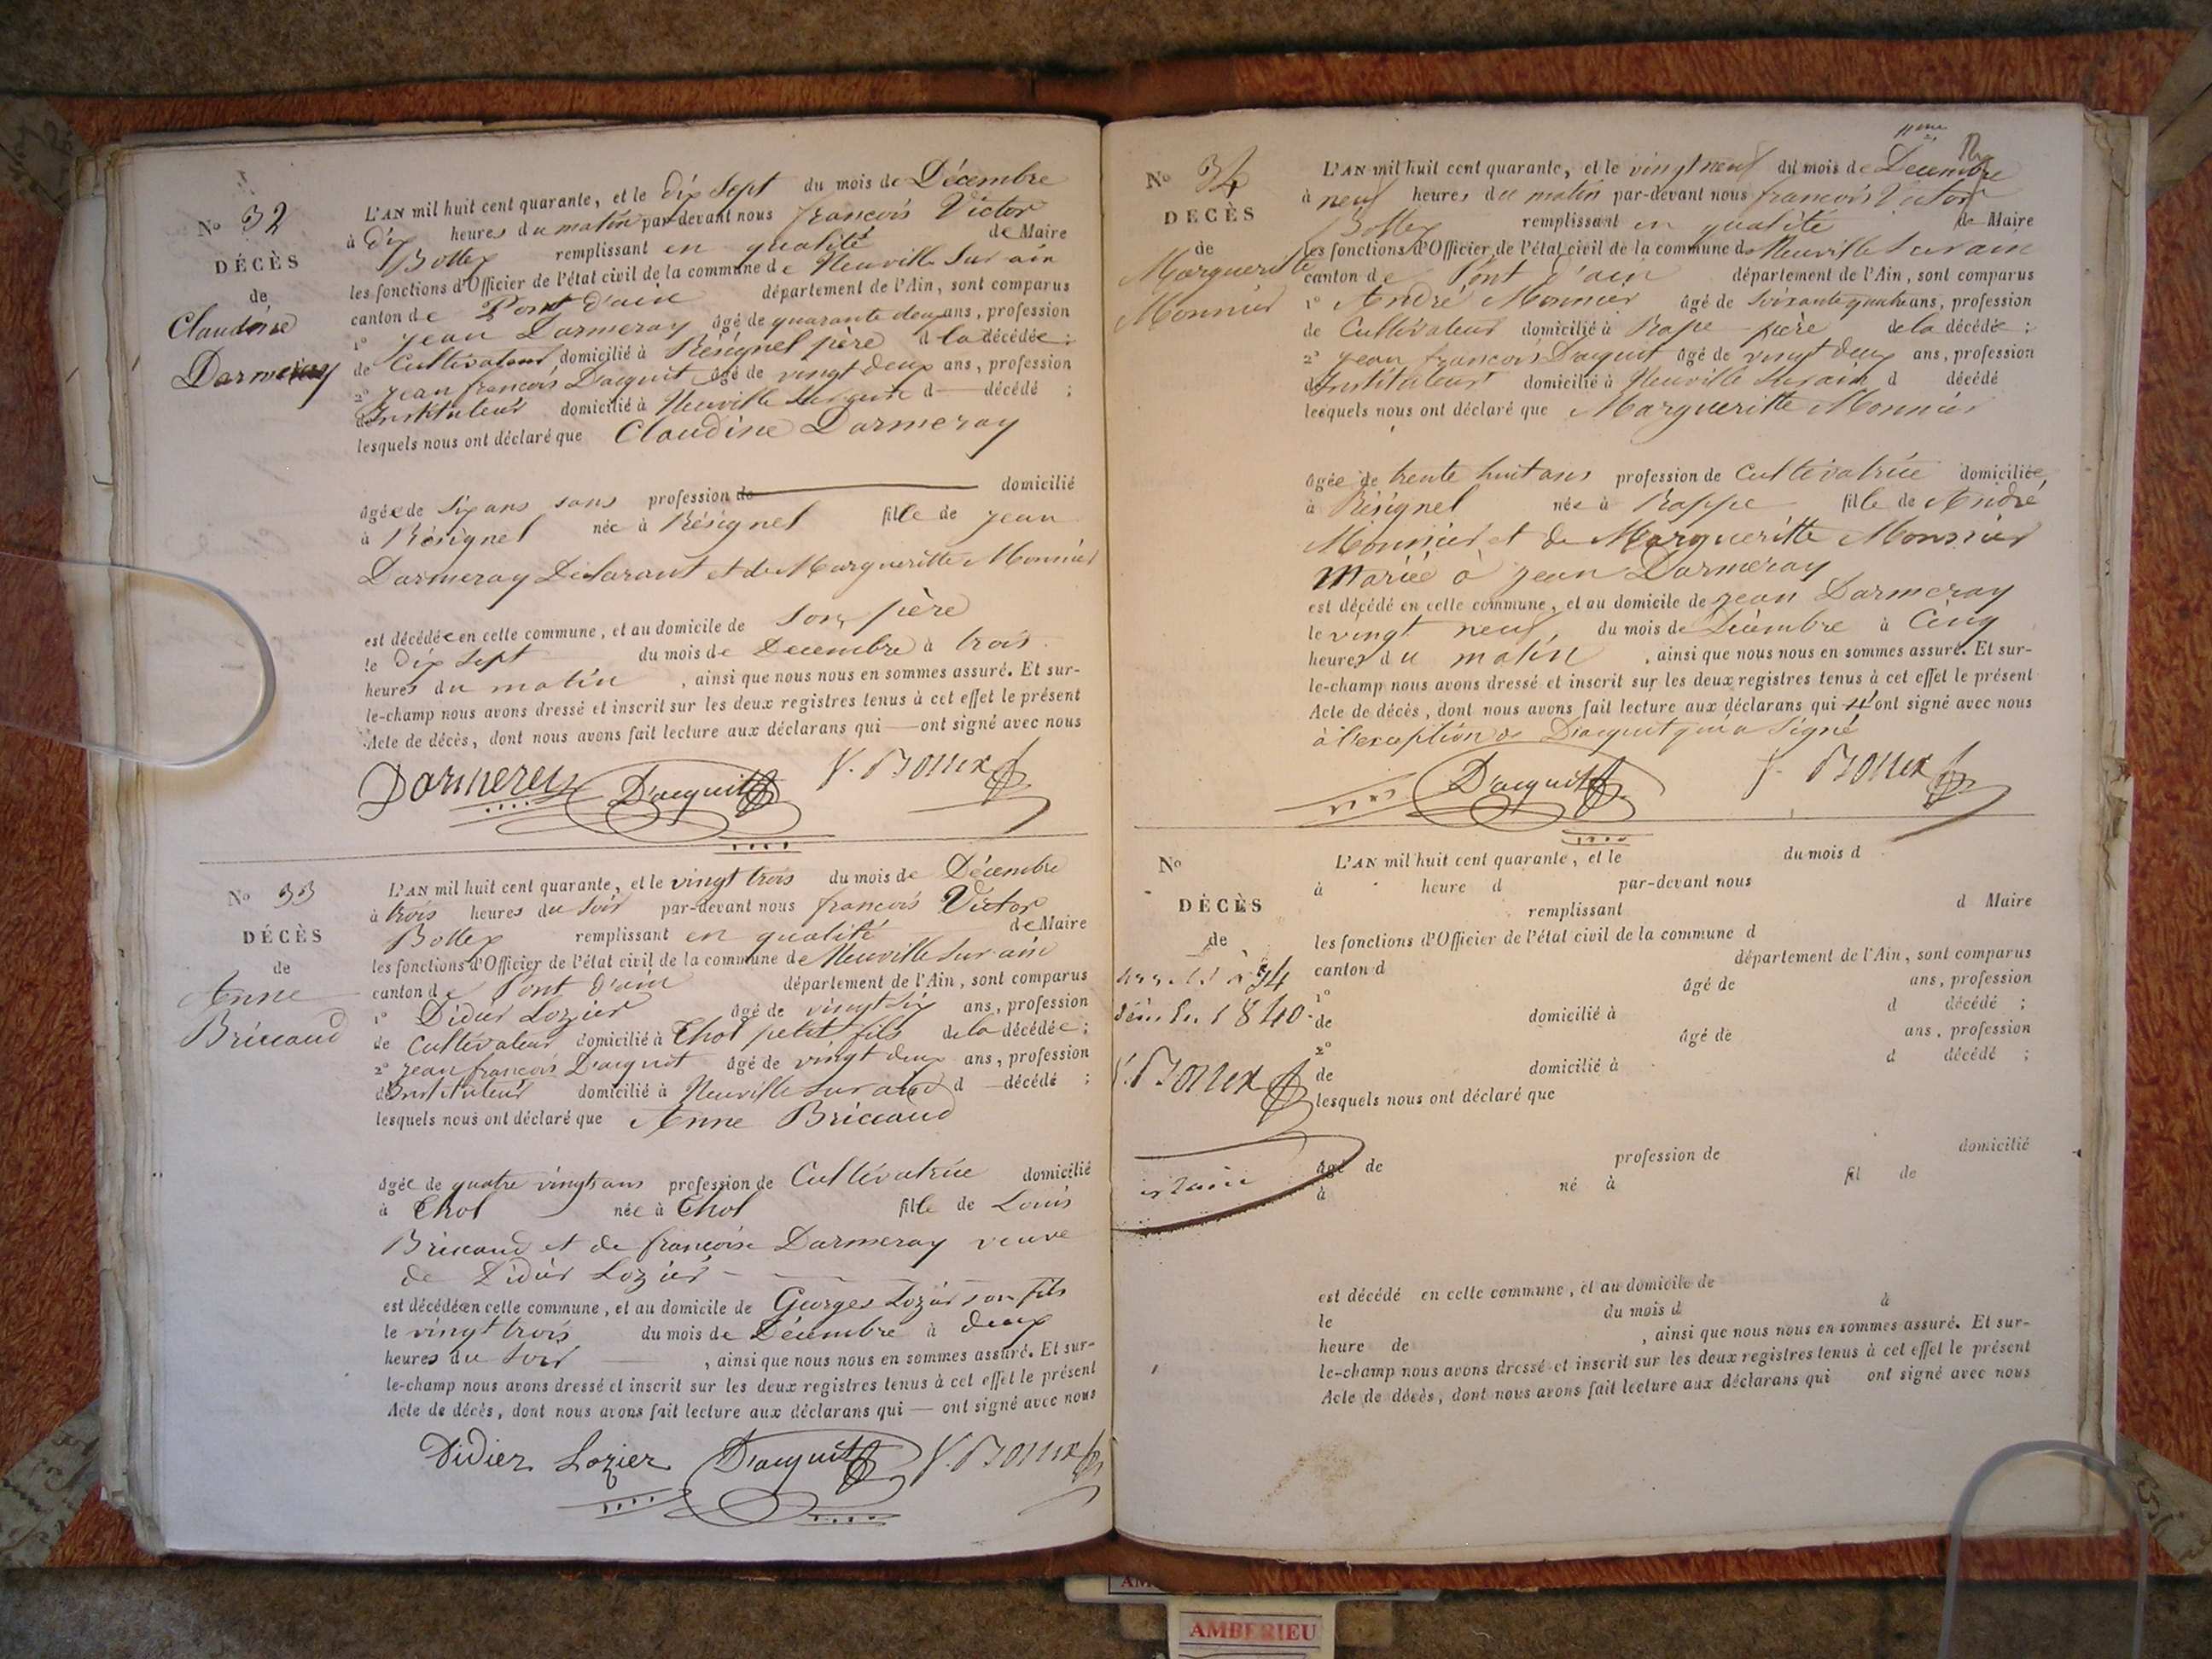 No 32
DÉCÈS
de
Claudine
Darmeray
L'AN mil huit cent quarante, et le dix sept du mois de Décembre
à dix heures du matin par-devant nous françois Victor
Bottex remplissant en qualité de Maire
les fonctions d'Officier de l'état civil de la commune de Neuville sur ain
canton de Pont d'ain département de l'Ain, sont comparus
1° Jean Darmeray âgé de quarante deux ans, profession
de Cultivateur domicilié à Résignel père d la décédée ;
2° Jean françois Dacquit âgé de vingt deux ans, profession
d'Instituteur domicilié à Neuville sur ain d — décédé ;
lesquels nous ont déclaré que Claudine Darmeray
âgée de six ans sans profession de domicilié
à Résignel née à Résignel fille de Jean
Darmeray Déclarant et de Margueritte Monnier
est décédée en celle commune, et au domicile de son père
le dix sept du mois de Decembre à trois
heures du matin , ainsi que nous nous en sommes assuré. Et sur-
le-champ nous avons dressé et inscrit sur les deux registres tenus à cet effet le présent
Acte de décès, dont nous avons fait lecture aux déclarans qui — ont signé avec nous
Darmerey Dacquit f. Bottex
No 33
DÉCÈS
de
Anne
Briccaud
L'AN mil huit cent quarante, et le vingt trois du mois de Décembre
à trois heures du soir par-devant nous françois Victor
Bottex remplissant en qualité de Maire
les fonctions d'Officier de l'état civil de la commune de Neuville sur ain
canton de Pont d'ain département de l'Ain, sont comparus
1° Didier Lozier âgé de vingt six ans, profession
de Cultivateur domicilié à Thol petit fils de la décédée ;
2° Jean françois Dacquit âgé de vingt deux ans, profession
d'Instituteur domicilié à Neuville sur ain d — décédé ;
lesquels nous ont déclaré que Anne Briccaud
âgée de quatre vingts ans profession de Cultivatrice domicilié
à Thol née à Thol fille de Louis
Briccaud et de françoise Darmeray veuve
de Didier Lozier
est décédée en celle commune, et au domicile de Georges Lozier son fils
le vingt trois du mois de Décembre à deux
heures du soir , ainsi que nous nous en sommes assuré. Et sur-
le-champ nous avons dressé et inscrit sur les deux registres tenus à cet effet le présent
Acte de décès, dont nous avons fait lecture aux déclarans qui — ont signé avec nous
Didier Lozier Dacquit f. Bottex
11me
No 34
DECÈS
de
Margueritte
Monnier
L'AN mil huit cent quarante, et le vingt neuf du mois de Décembre
à neuf heures du matin par-devant nous françois Victor
Bottex remplissant en qualité de Maire
les fonctions d'Officier de l'état civil de la commune de Neuville sur ain
canton de Pont d'ain département de l'Ain, sont comparus
1° André Monnier âgé de soixante quatre ans, profession
de Cultivateur domicilié à Rape père de la décédée ;
2° Jean françois Dacquit âgé de vingt deux ans, profession
d'Instituteur domicilié à Neuville sur ain d décédé
lesquels nous ont déclaré que Margueritte Monnier
âgée de trente huit ans profession de Cultivatrice domiciliée
à Résignel née à Rappe fille de André
Monnier et de Margueritte Monnier
Mariée à Jean Darmeray
est décédé en celle commune, et au domicile de Jean Darmeray
le vingt neuf, du mois de Décembre à Cinq
heures du matin , ainsi que nous nous en sommes assuré. Et sur-
le-champ nous avons dressé et inscrit sur les deux registres tenus à cet effet le présent
Acte de décès, dont nous avons fait lecture aux déclarans qui n'ont signé avec nous
à l'exception de Dacquit qui a signé
Dacquit f. Bottex
No
DÉCÈS
de
34
1840.
f. Bottex
L'AN mil huit cent quarante, et le du mois d
à heure d par-devant nous
remplissant d Maire
les fonctions d'Officier de l'état civil de la commune d
canton d département de l'Ain, sont comparus
1° âgé de ans, profession
de domicilié à d décédé ;
2° âgé de ans, profession
de domicilié à d décédé ;
lesquels nous ont déclaré que
âgé de profession de domicilié
à né à fil de
est décédé en celle commune, et au domicile de
le du mois d à
heure de , ainsi que nous nous en sommes assuré. Et sur-
le-champ nous avons dressé et inscrit sur les deux registres tenus à cet effet le présent
Acte de décès, dont nous avons fait lecture aux déclarans qui ont signé avec nous
AMBERIEU